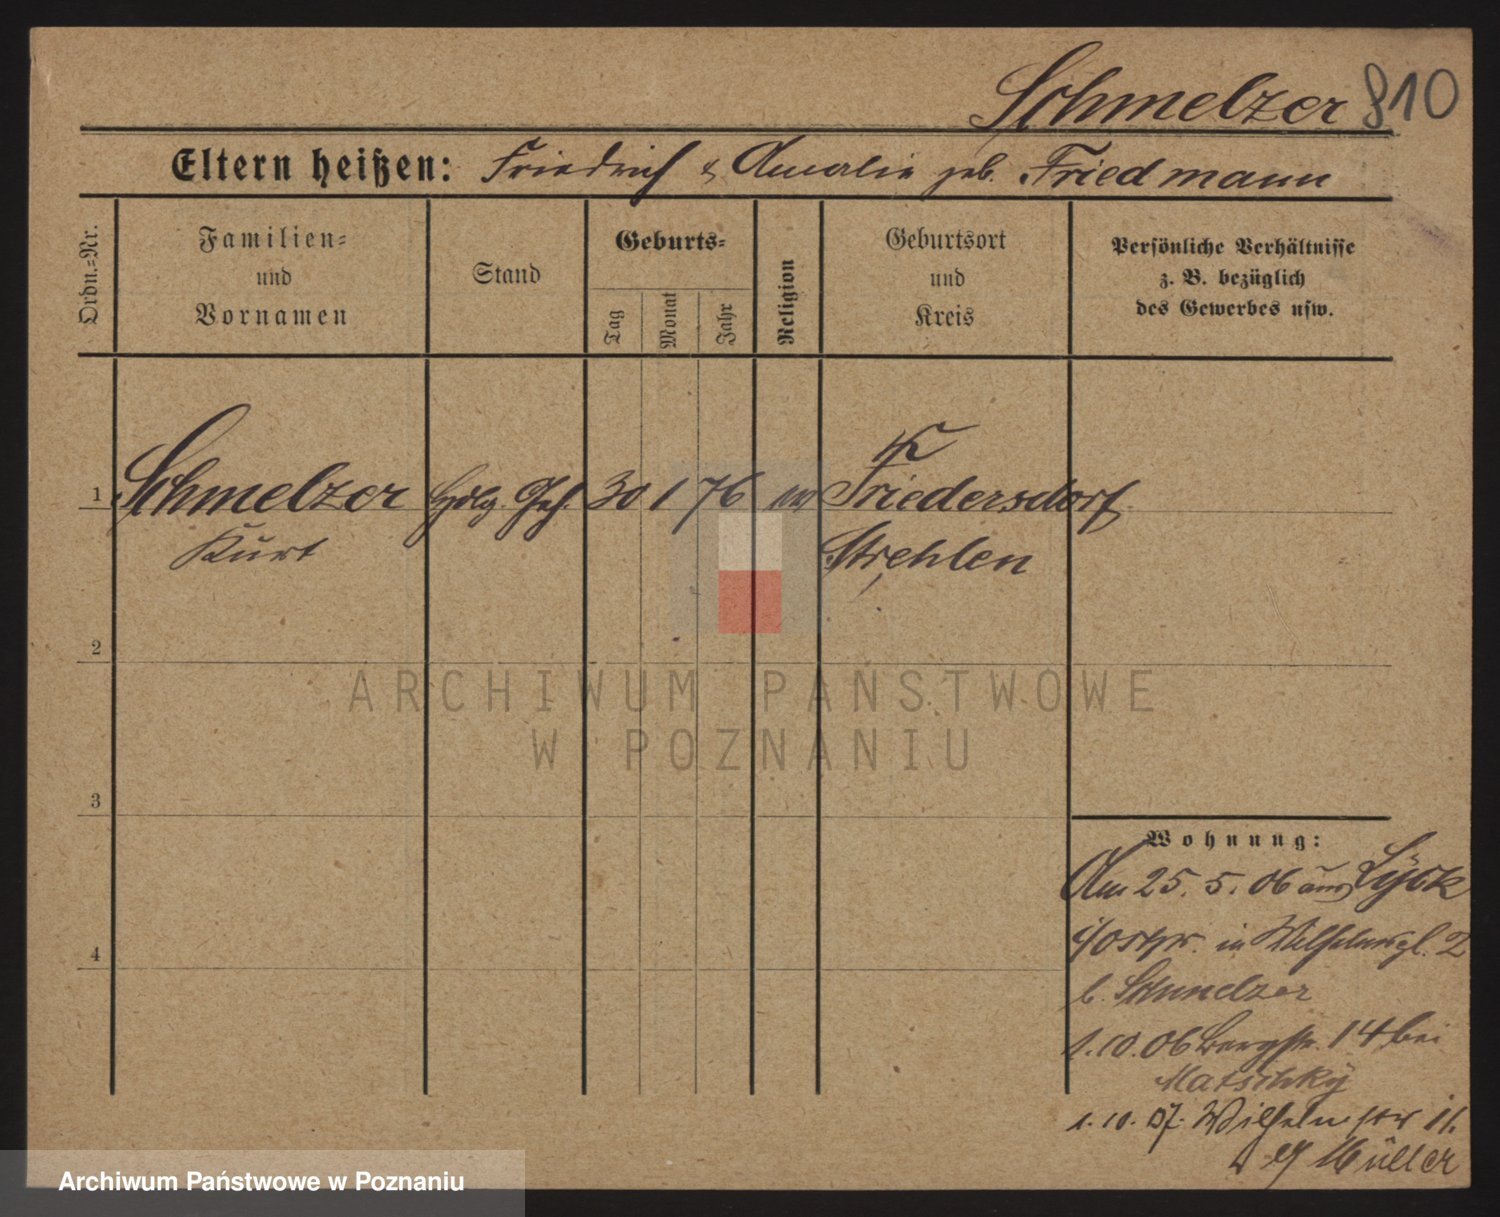 Schmelzer 810
Eltern heißen: Friedrich & Amalie geb. Friedmann
Ordn.=Nr.
Familien=
und
Vornamen
Stand
Geburts=
Tag
Monat
Jahr
Religion
Geburtsort
und
Kreis
Persönliche Verhältnisse
z. B. bezüglich
des Gewerbes usw.
1 Schmelzer Hdlg. Geh. 30 1 76 ev Friedersdorf
Kurt Strehlen
2
ARCHIWUM PAŃSTWOWE
W POZNANIU
3
Wohnung:
Am 25. 5. 06 aus Lyck
i/Ostpr. in Wilhelmspl. 2
b. Schmelzer
4
1.10.06 Bergstr. 14 bei
Matschky
1.10.07. Wilhelmstr 11.
Müller
Archiwum Państwowe w Poznaniu